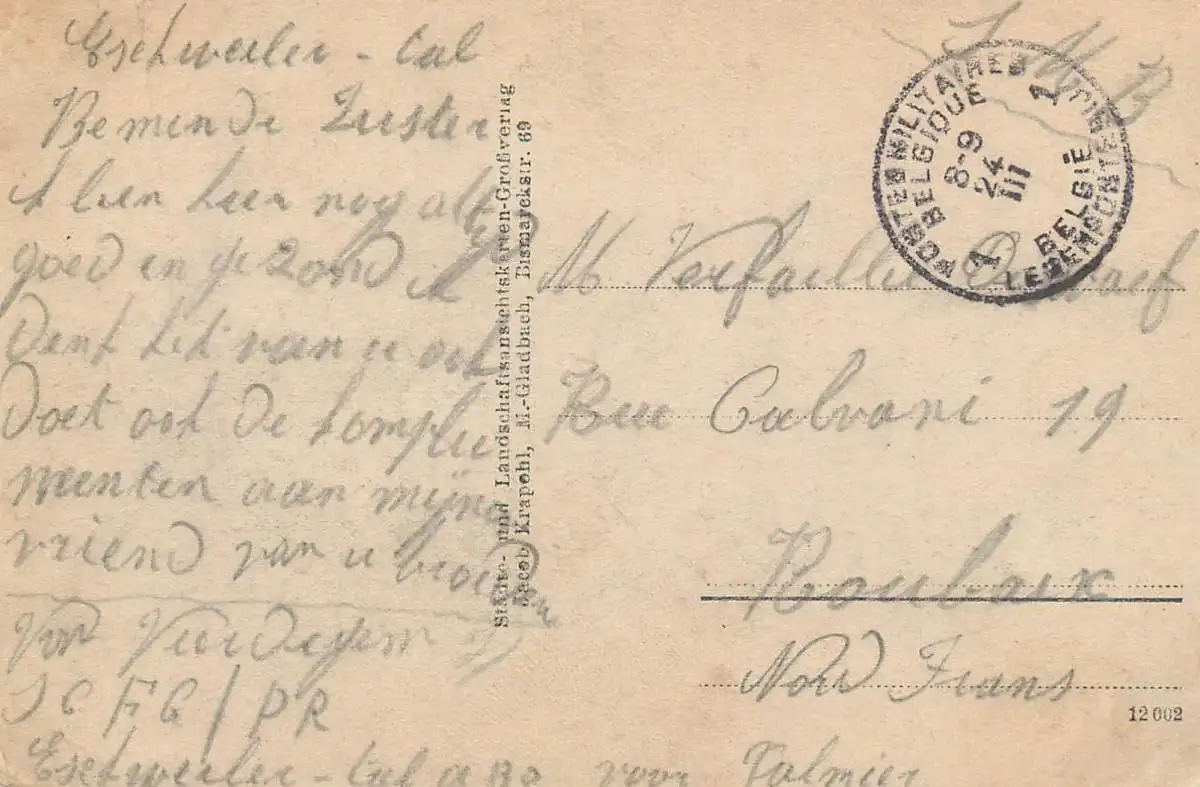 Eschweiler - Cal
Beminde Zuster
ben nog
goed en gezond ik
van u ook
Doet ook de komplie
menten aan mijne
vriend van u broeder
Van
FC / PR
Eschweiler - Cal voor
Städte- und Landschaftsansichtskarten-Großverlag
Jacob Krapohl, M.-Gladbach, Bismarckstr. 69
S M B
POSTES MILITAIRES
BELGIQUE
1
8-9
24
III
1
BELGIË
LEGERPOSTERIJ
M Verfaillie
Rue Calvani 19
Roubaix
Nord Frans
12 002